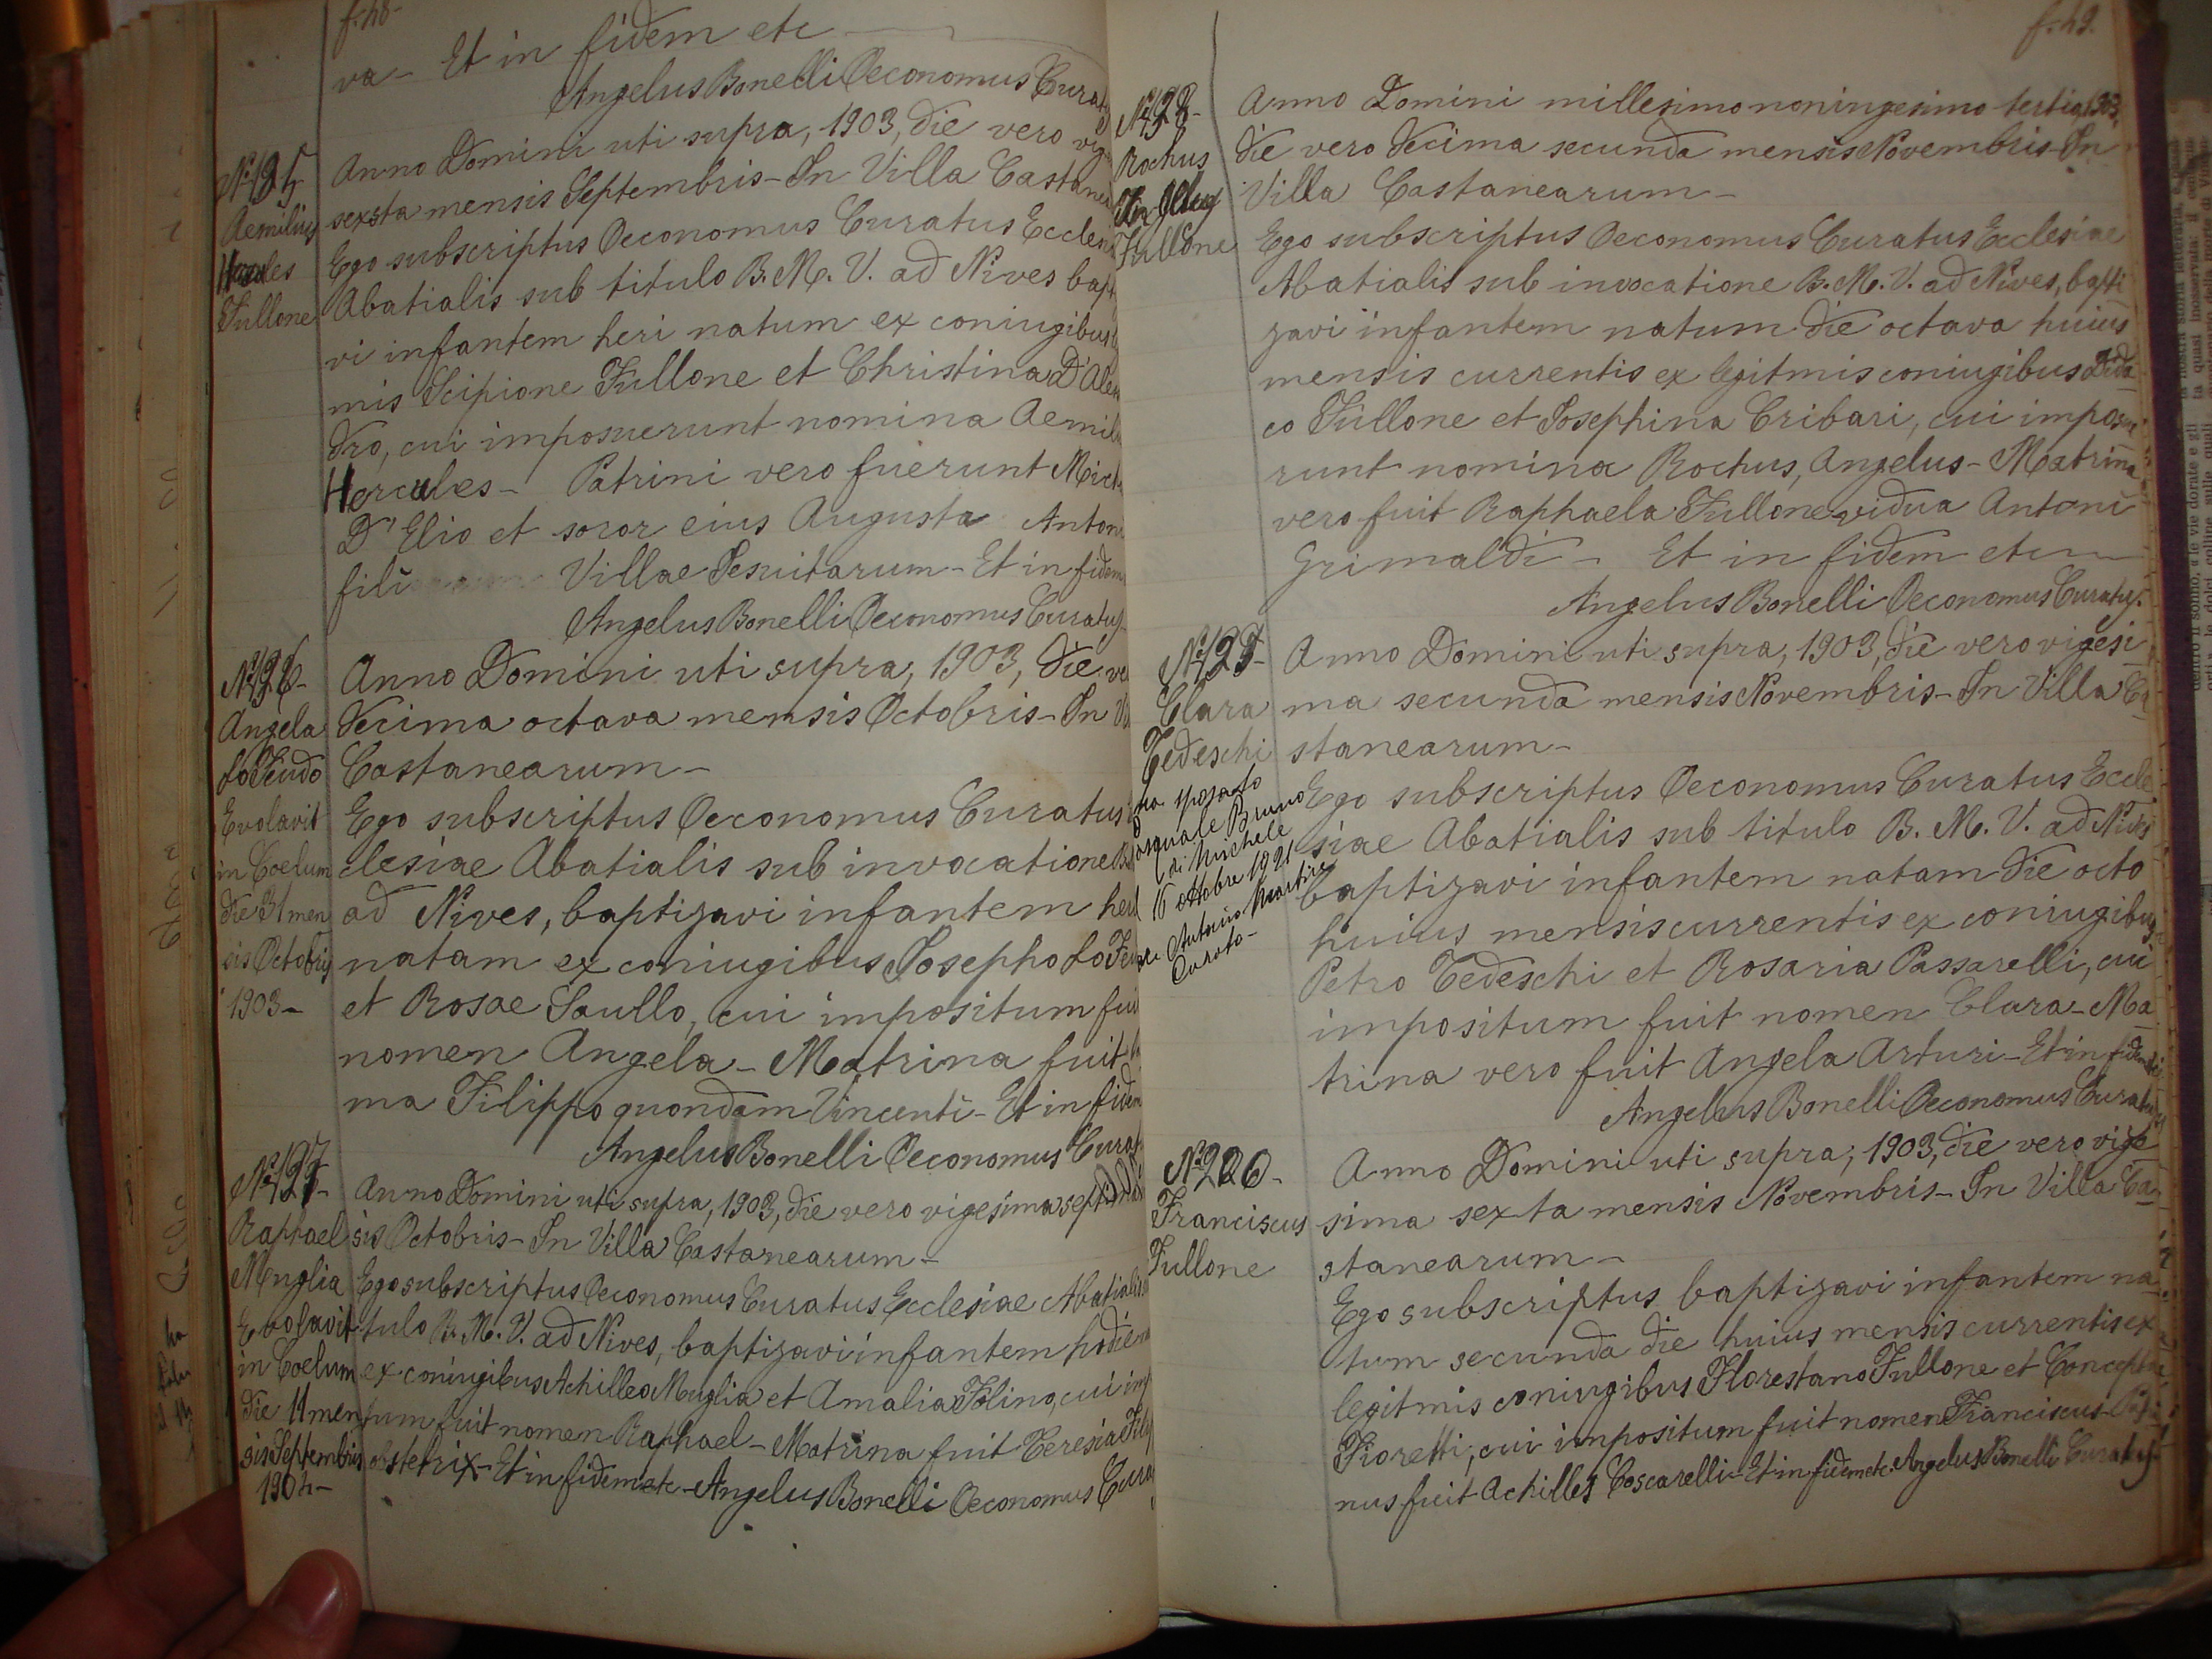 f. 48-
va - Et in fidem etc
Angelus Bonelli Oeconomus Curat
Anno Domini uti supra, 1903, die vero vige
sexsta mensis Septembris - In Villa Castane
Ego subscriptus Oeconomus Curatus Ecclesi
Abatialis sub titulo B. M. V. ad Nives bapt
vi infantem heri natum ex coniugibus
mis Scipione Fullone et Christina D'Ale
dro, cui imposuerunt nomina Aemil
Hercules - Patrini vero fuerunt Mich
D'Elio et soror eius Augusta Anton
fili Villae Jesuitarum - Et in fidem
Angelus Bonelli Oeconomus Curatus -
Aemilius
Hercules
Fullone
Anno Domini uti supra, 1903, die ve
decima octava mensis Octobris - In Vi
Castanearum -
Ego subscriptus Oeconomus Curatus
clesiae Abatialis sub invocatione B
ad Nives, baptizavi infantem heri
natam ex coniugibus Josepho Lo Feu
et Rosae Saullo, cui impositum fuit
nomen Angela - Matrina fuit
ma Filippo quondam Vincenti - Et in fidem
Angelus Bonelli Oeconomus Curat
Angela
Lo Feudo
Evolavit
in Coelum
die 31 men
sis Octobris
1903 -
Anno Domini uti supra, 1903, die vero vigesima septima
sis Octobris - In Villa Castanearum -
Ego subscriptus Oeconomus Curatus Ecclesiae Abatialis
tulo B. M. V. ad Nives, baptizavi infantem hodie
ex coniugibus Achilleo Muglia et Amalia Folino, cui imp
tum fuit nomen Raphael - Matrina fuit Teresia Filip
obstetrix - Et in fidem etc - Angelus Bonelli Oeconomus Cura
Nº 197-
Raphael
Muglia
Evolavit
in Coelum
die 11 men
sis Septembris
1904 -
f. 49.
Anno Domini millesimo noningesimo tertio, 1903,
die vero decima secunda mensis Novembris - In
Villa Castanearum -
Ego subscriptus Oeconomus Curatus Ecclesiae
Abatialis sub invocatione B. M. V. ad Nives, bapti
zavi infantem natum die octava huius
mensis currentis ex legitmis coniugibus Dida
co Fullone et Josephina Cribari, cui imposue
runt nomina Rochus, Angelus - Matrina
vero fuit Raphaela Fullone vidua Antoni
Grimaldi - Et in fidem etc
Angelus Bonelli Oeconomus Curatus -
Nº 198-
Rochus
Fullone
Anno Domini uti supra, 1903, die vero vigesi
ma secunda mensis Novembris - In Villa Ca
stanearum -
Ego subscriptus Oeconomus Curatus Eccle
siae Abatialis sub titulo B. M. V. ad Nives
baptizavi infantem natam die octo
huius mensis currentis ex coniugibus
Petro Tedeschi et Rosaria Passarelli, cui
impositum fuit nomen Clara - Ma
trina vero fuit Angela Arturi - Et in fidem etc
Angelus Bonelli Oeconomus Curatus
Clara
Tedeschi
ha sposato
Pasquale Bruno
(di Michele
16 ottobre 1921
Antonio Martire
Curato -
Anno Domini uti supra, 1903, die vero vige
sima sexta mensis Novembris - In Villa Ca
stanearum -
Ego subscriptus baptizavi infantem na
tum secunda die huius mensis currentis ex
legitmis coniugibus Florestano Fullone et Conceptae
Fioretti, cui impositum fuit nomen Franciscus - Patri
nus fuit Achilles Coscarelli - Et in fidem etc. Angelus Bonelli Curatus -
Nº 200-
Franciscus
Fullone